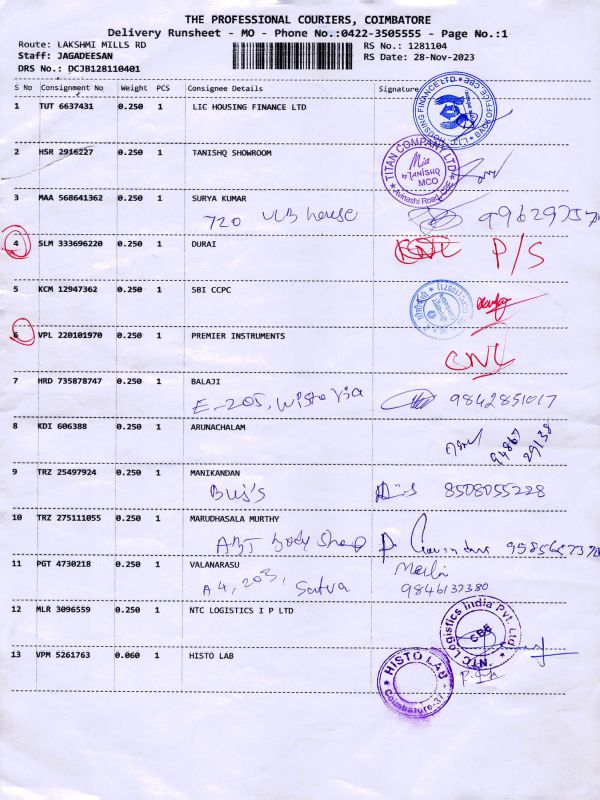 THE PROFESSIONAL COURIERS, COIMBATORE
Delivery Runsheet - MO - Phone No.:0422-3505555 - Page No.:1
Route: LAKSHMI MILLS RD
RS No.: 1281104
Staff: JAGADEESAN
RS Date: 28-Nov-2023
DRS No.: DCJB128110401
S No Consignment No Weight PCS Consignee Details Signature
1 TUT 6637431 0.250 1 LIC HOUSING FINANCE LTD
2 HSR 2916227 0.250 1 TANISHQ SHOWROOM
TITAN COMPANY LTD
Mia
by TANISHQ
MCO
Avinashi Road, CBE
3 MAA 568641362 0.250 1 SURYA KUMAR
720 ULB house
4 SLM 333696220 0.250 1 DURAI
P/S
5 KCM 12947362 0.250 1 SBI CCPC
6 VPL 220101970 0.250 1 PREMIER INSTRUMENTS
CNL
7 HRD 735878747 0.250 1 BALAJI
E-205, 9842851017
8 KDI 606388 0.250 1 ARUNACHALAM
94867
29138
9 TRZ 25497924 0.250 1 MANIKANDAN
8508055228
10 TRZ 275111055 0.250 1 MARUDHASALA MURTHY
ABT body Shop
11 PGT 4730218 0.250 1 VALANARASU
A4, 203, 9846137380
12 MLR 3096559 0.250 1 NTC LOGISTICS I P LTD
NTC Logistics India Pvt. Ltd
CBE
13 VPM 5261763 0.060 1 HISTO LAB
HISTO LAB
Coimbatore-37